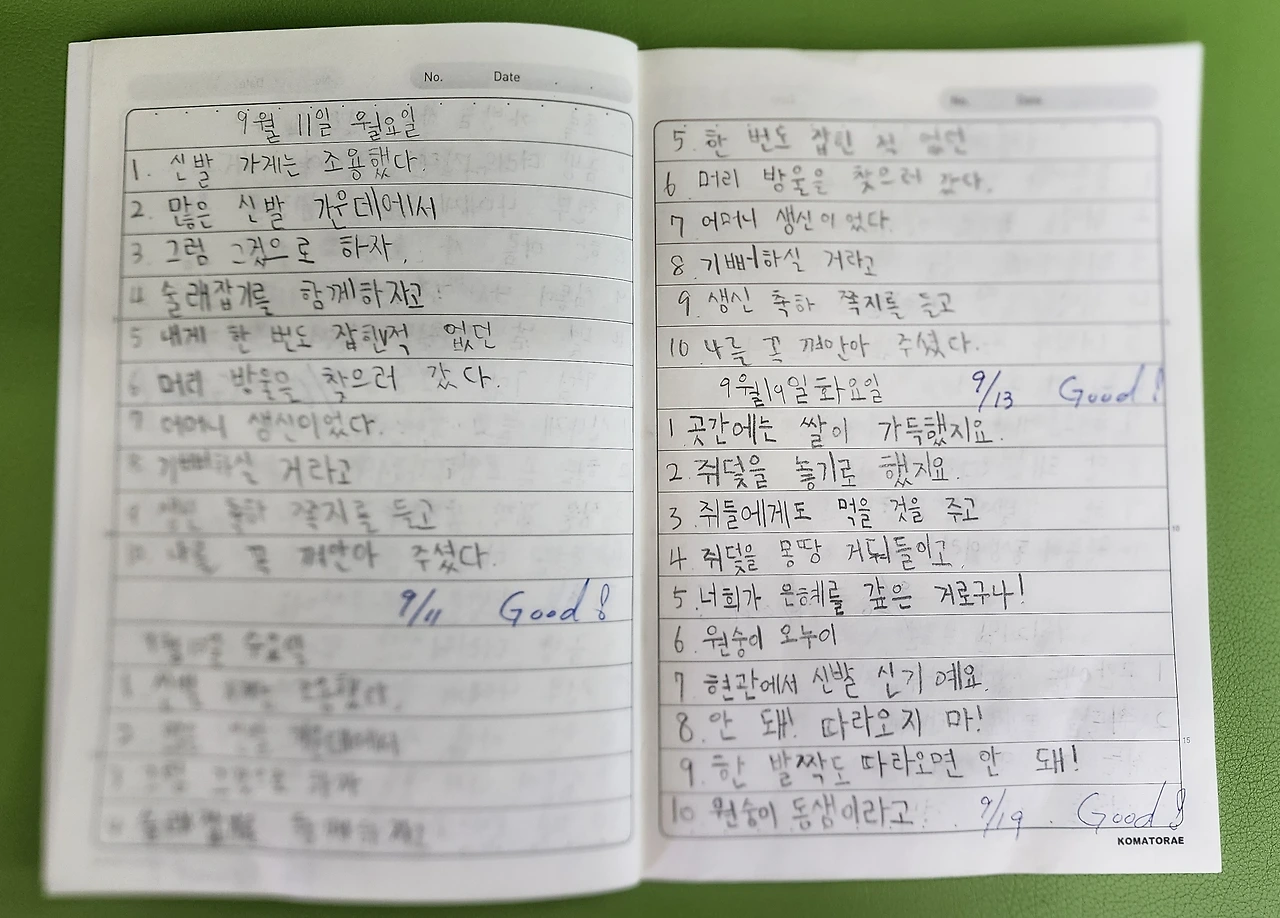 No. Date
9월 11일 월요일
1. 신발 가게는 조용했다.
2. 많은 신발 가운데에서
3. 그럼 그것으로 하자.
4 술래잡기를 함께하자고
5 내게 한 번도 잡힌적 없던
6 머리 방울은 찾으러 갔다.
7 어머니 생신이었다.
8 기뻐하실 거라고
9 생신 축하 쪽지를 들고
10. 나를 꼭 껴안아 주셨다.
9/11 Good!
수요일
1 신발 조용했다.
2
3
4 술래잡기를
No. Date
5. 한 번도 잡힌 적 없던
6 머리 방울을 찾으러 갔다.
7 어머니 생신이었다.
8 기뻐하실 거라고
9 생신 축하 쪽지를 들고
10 나를 꼭 껴안아 주셨다.
9월19일화요일 9/13 Good!
1. 곳간에는 쌀이 가득했지요.
2. 쥐덫을 놓기로 했지요.
3. 쥐들에게도 먹을 것을 주고
4 쥐덫을 몽땅 거둬들이고
5. 너희가 은혜를 갚은 거로구나!
6 원숭이 오누이
7 현관에서 신발 신기예요.
8. 안 돼! 따라오지 마!
9. 한 발짝도 따라오면 안 돼!
10 원숭이 동생이라고 9/19 Good!
KOMATORAE